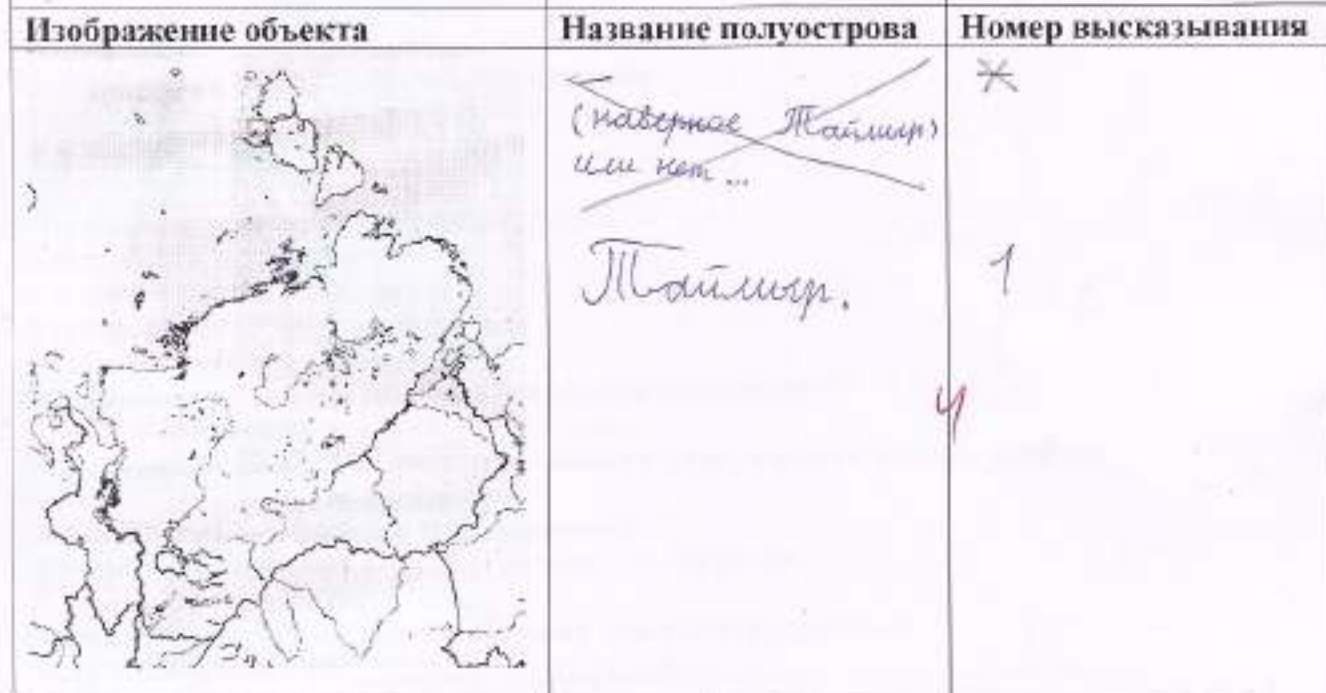 Изображение объекта
Название полуострова
Номер высказывания
(наверное Таймыр)
или нет...
Таймыр.
1
4